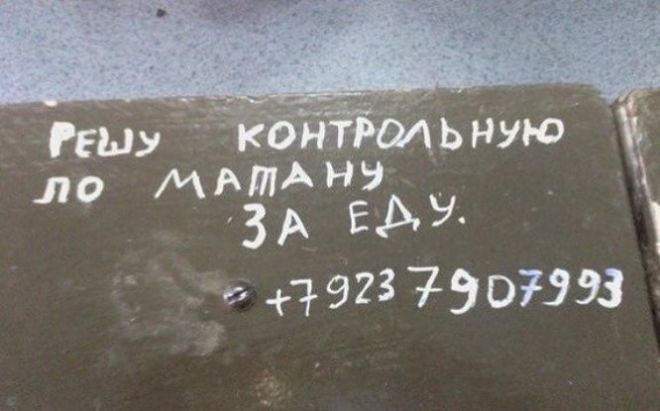 РЕШУ КОНТРОЛЬНУЮ
ПО МАТАНУ
ЗА ЕДУ.
+7923 7907993